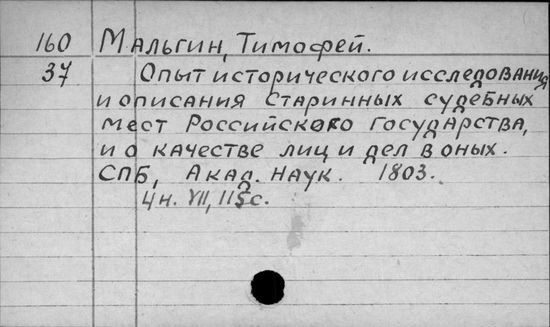 160 Мальгин, Тимофей.
37 Опыт исторического исследования
и описания старинных судебных
мест Российского государства,
и о качестве лиц и дел в оных.
СПБ, Акад. наук. 1803.
4н. VII, 115 с.